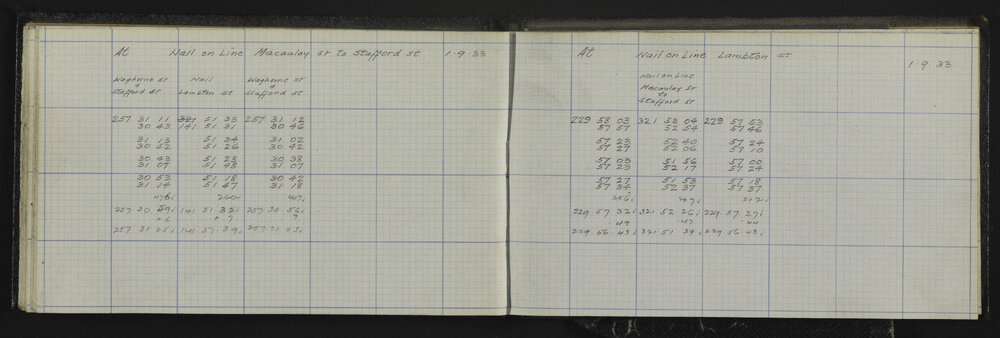 At Nail on Line Macaulay St to Stafford St 1·9·33
Waghorne St Nail Waghorne St
& &
Stafford St Lambton St Stafford St
257 31 11 321 51 33 257 31 12
30 43 141 51 31 30 46
31 13 51 34 31 02
30 52 51 26 30 42
30 43 51 23 30 38
31 07 51 43 31 07
30 53 51 18 30 42
31 14 51 47 31 18
476 260 447
257 30 59 141 51 32 257 30 56
+6 +7 9
257 31 05 141 51 39 257 31 05
At Nail on Line Lambton St
1·9·33
Nail on Line
Macaulay St
to
Stafford St
229 58 03 321 53 04 229 57 53
57 57 52 54 57 46
57 23 52 40 57 24
57 27 52 06 57 10
57 03 51 56 57 00
57 23 52 17 57 24
57 27 51 53 57 18
57 34 52 37 57 37
256 207 212
229 57 32 321 52 26 229 57 27
·49 ·47 ·44
229 56 43 321 51 39 229 56 43